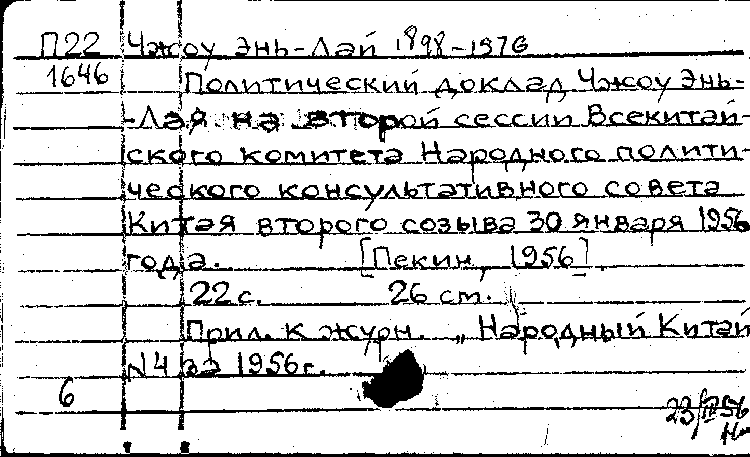 П22 Чжоу Энь-Лай 1898-1976
1646 Политический доклад Чжоу Энь-
-Лая на второй сессии Всекитай-
ского комитета Народного полити-
ческого консультативного совета
Китая второго созыва 30 января 1956
года. [Пекин, 1956].
22 с. 26 см.
Прил. к журн. „Народный Китай
N4 за 1956 г.
6
23/III 56